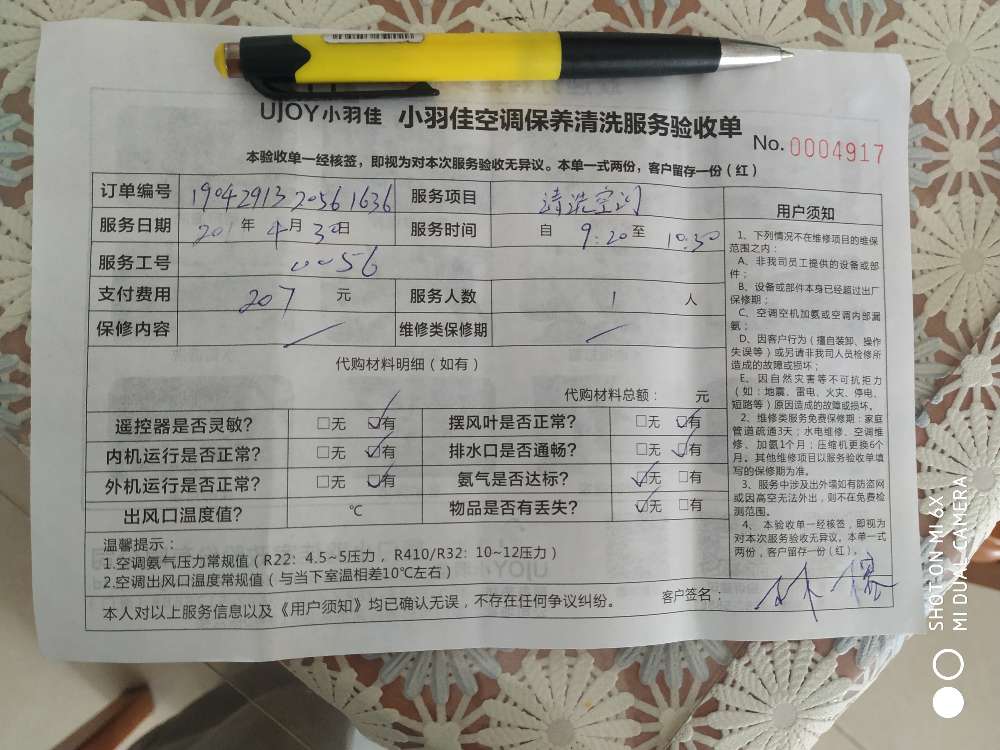 UJOY小羽佳 小羽佳空调保养清洗服务验收单
No. 0004917
本验收单一经核签，即视为对本次服务验收无异议。本单一式两份，客户留存一份（红）
订单编号 19042913 20561636 服务项目 清洗空调
服务日期 201 年 4 月 30 日 服务时间 自 9:20 至 10:50
服务工号 0056
支付费用 207 元 服务人数 1 人
保修内容 / 维修类保修期 /
代购材料明细（如有）
代购材料总额： 元
遥控器是否灵敏？ □无 ☑有 摆风叶是否正常？ □无 ☑有
内机运行是否正常？ □无 ☑有 排水口是否通畅？ □无 ☑有
外机运行是否正常？ □无 ☑有 氨气是否达标？ ☑无 □有
出风口温度值？ ℃ 物品是否有丢失？ ☑无 □有
温馨提示：
1.空调氨气压力常规值（R22：4.5~5压力，R410/R32：10~12压力）
2.空调出风口温度常规值（与当下室温相差10℃左右）
本人对以上服务信息以及《用户须知》均已确认无误，不存在任何争议纠纷。
客户签名：
用户须知
1、下列情况不在维修项目的维保
范围之内：
A、非我司员工提供的设备或部
件；
B、设备或部件本身已经超过出厂
保修期；
C、空调空机加氨或空调内部漏
氨；
D、因客户行为（擅自装卸、操作
失误等）或另请非我司人员检修所
造成的故障或损坏；
E、因自然灾害等不可抗拒力
（如：地震、雷电、火灾、停电、
短路等）原因造成的故障或损坏。
2、维修类服务免费保修期：家庭
管道疏通3天；水电维修、空调维
修、加氨1个月；压缩机更换6个
月。其他维修项目以服务验收单填
写的保修期为准。
3、服务中涉及出外墙如有防盗网
或因高空无法外出，则不在免费检
测范围。
4、本验收单一经核签，即视为
对本次服务验收无异议。本单一式
两份，客户留存一份（红）。
SHOT ON MI 6X
MI DUAL CAMERA